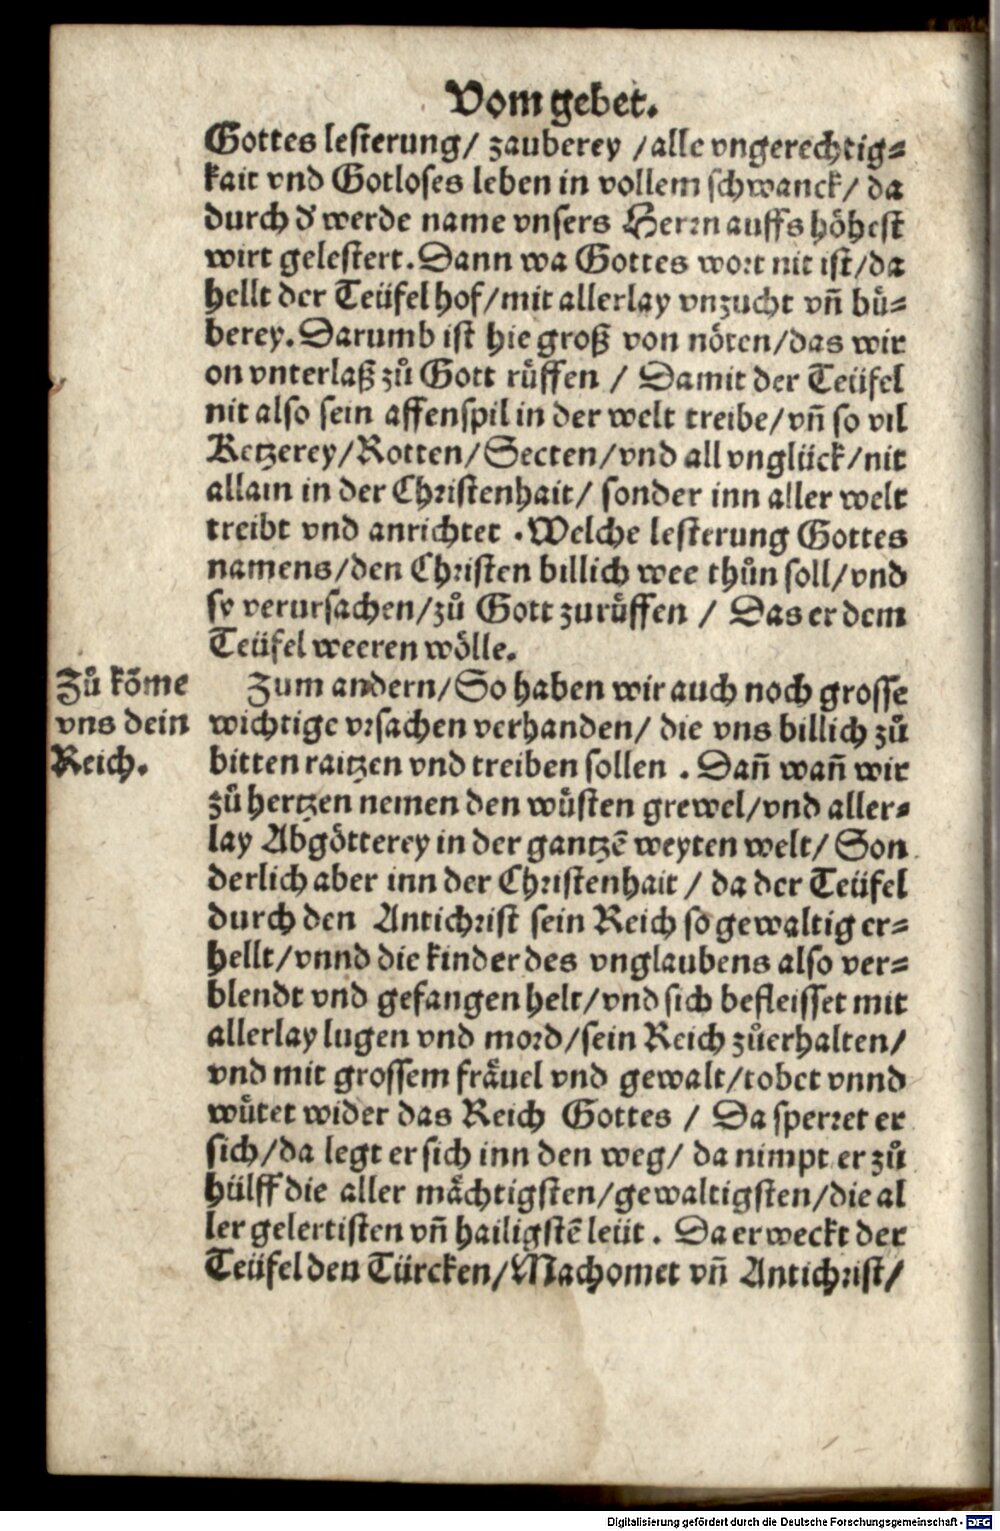 Vom gebet.
Gottes lesterung/ zauberey /alle vngerechtig⸗
kait vnd Gotloses leben in vollem schwanck/ da
durch d' werde name vnsers Herrn auffs höhest
wirt gelestert. Dann wa Gottes wort nit ist/da
hellt der Teüfel hof/mit allerlay vnzucht vñ bů⸗
berey. Darumb ist hie groß von nöten/das wir
on vnterlaß zů Gott růffen / Damit der Teüfel
nit also sein affenspil in der welt treibe/vñ so vil
Ketzerey/Rotten/Secten/vnd all vnglück/nit
allain in der Christenhait/ sonder inn aller welt
treibt vnd anrichtet . Welche lesterung Gottes
namens/den Christen billich wee thůn soll/vnd
sy verursachen/zů Gott zurůffen / Das er dem
Teüfel weeren wölle.
Zů kõme
vns dein
Reich.
Zum andern/So haben wir auch noch grosse
wichtige vrsachen verhanden/ die vns billich zů
bitten raitzen vnd treiben sollen . Dañ wañ wir
zů hertzen nemen den wůsten grewel/vnd aller⸗
lay Abgötterey in der gantzẽ weyten welt/ Son
derlich aber inn der Christenhait / da der Teüfel
durch den Antichrist sein Reich so gewaltig er⸗
hellt/vnnd die kinder des vnglaubens also ver⸗
blendt vnd gefangen helt/vnd sich befleisset mit
allerlay lugen vnd mord/sein Reich zůerhalten/
vnd mit grossem fräuel vnd gewalt/tobet vnnd
wůtet wider das Reich Gottes / Da sperret er
sich/da legt er sich inn den weg/ da nimpt er zů
hülff die aller mächtigsten/gewaltigsten/die al
ler gelertisten vñ hailigstẽ leüt . Da erweckt der
Teüfel den Türcken/Machomet vñ Antichrist/
Digitalisierung gefördert durch die Deutsche Forschungsgemeinschaft - DFG